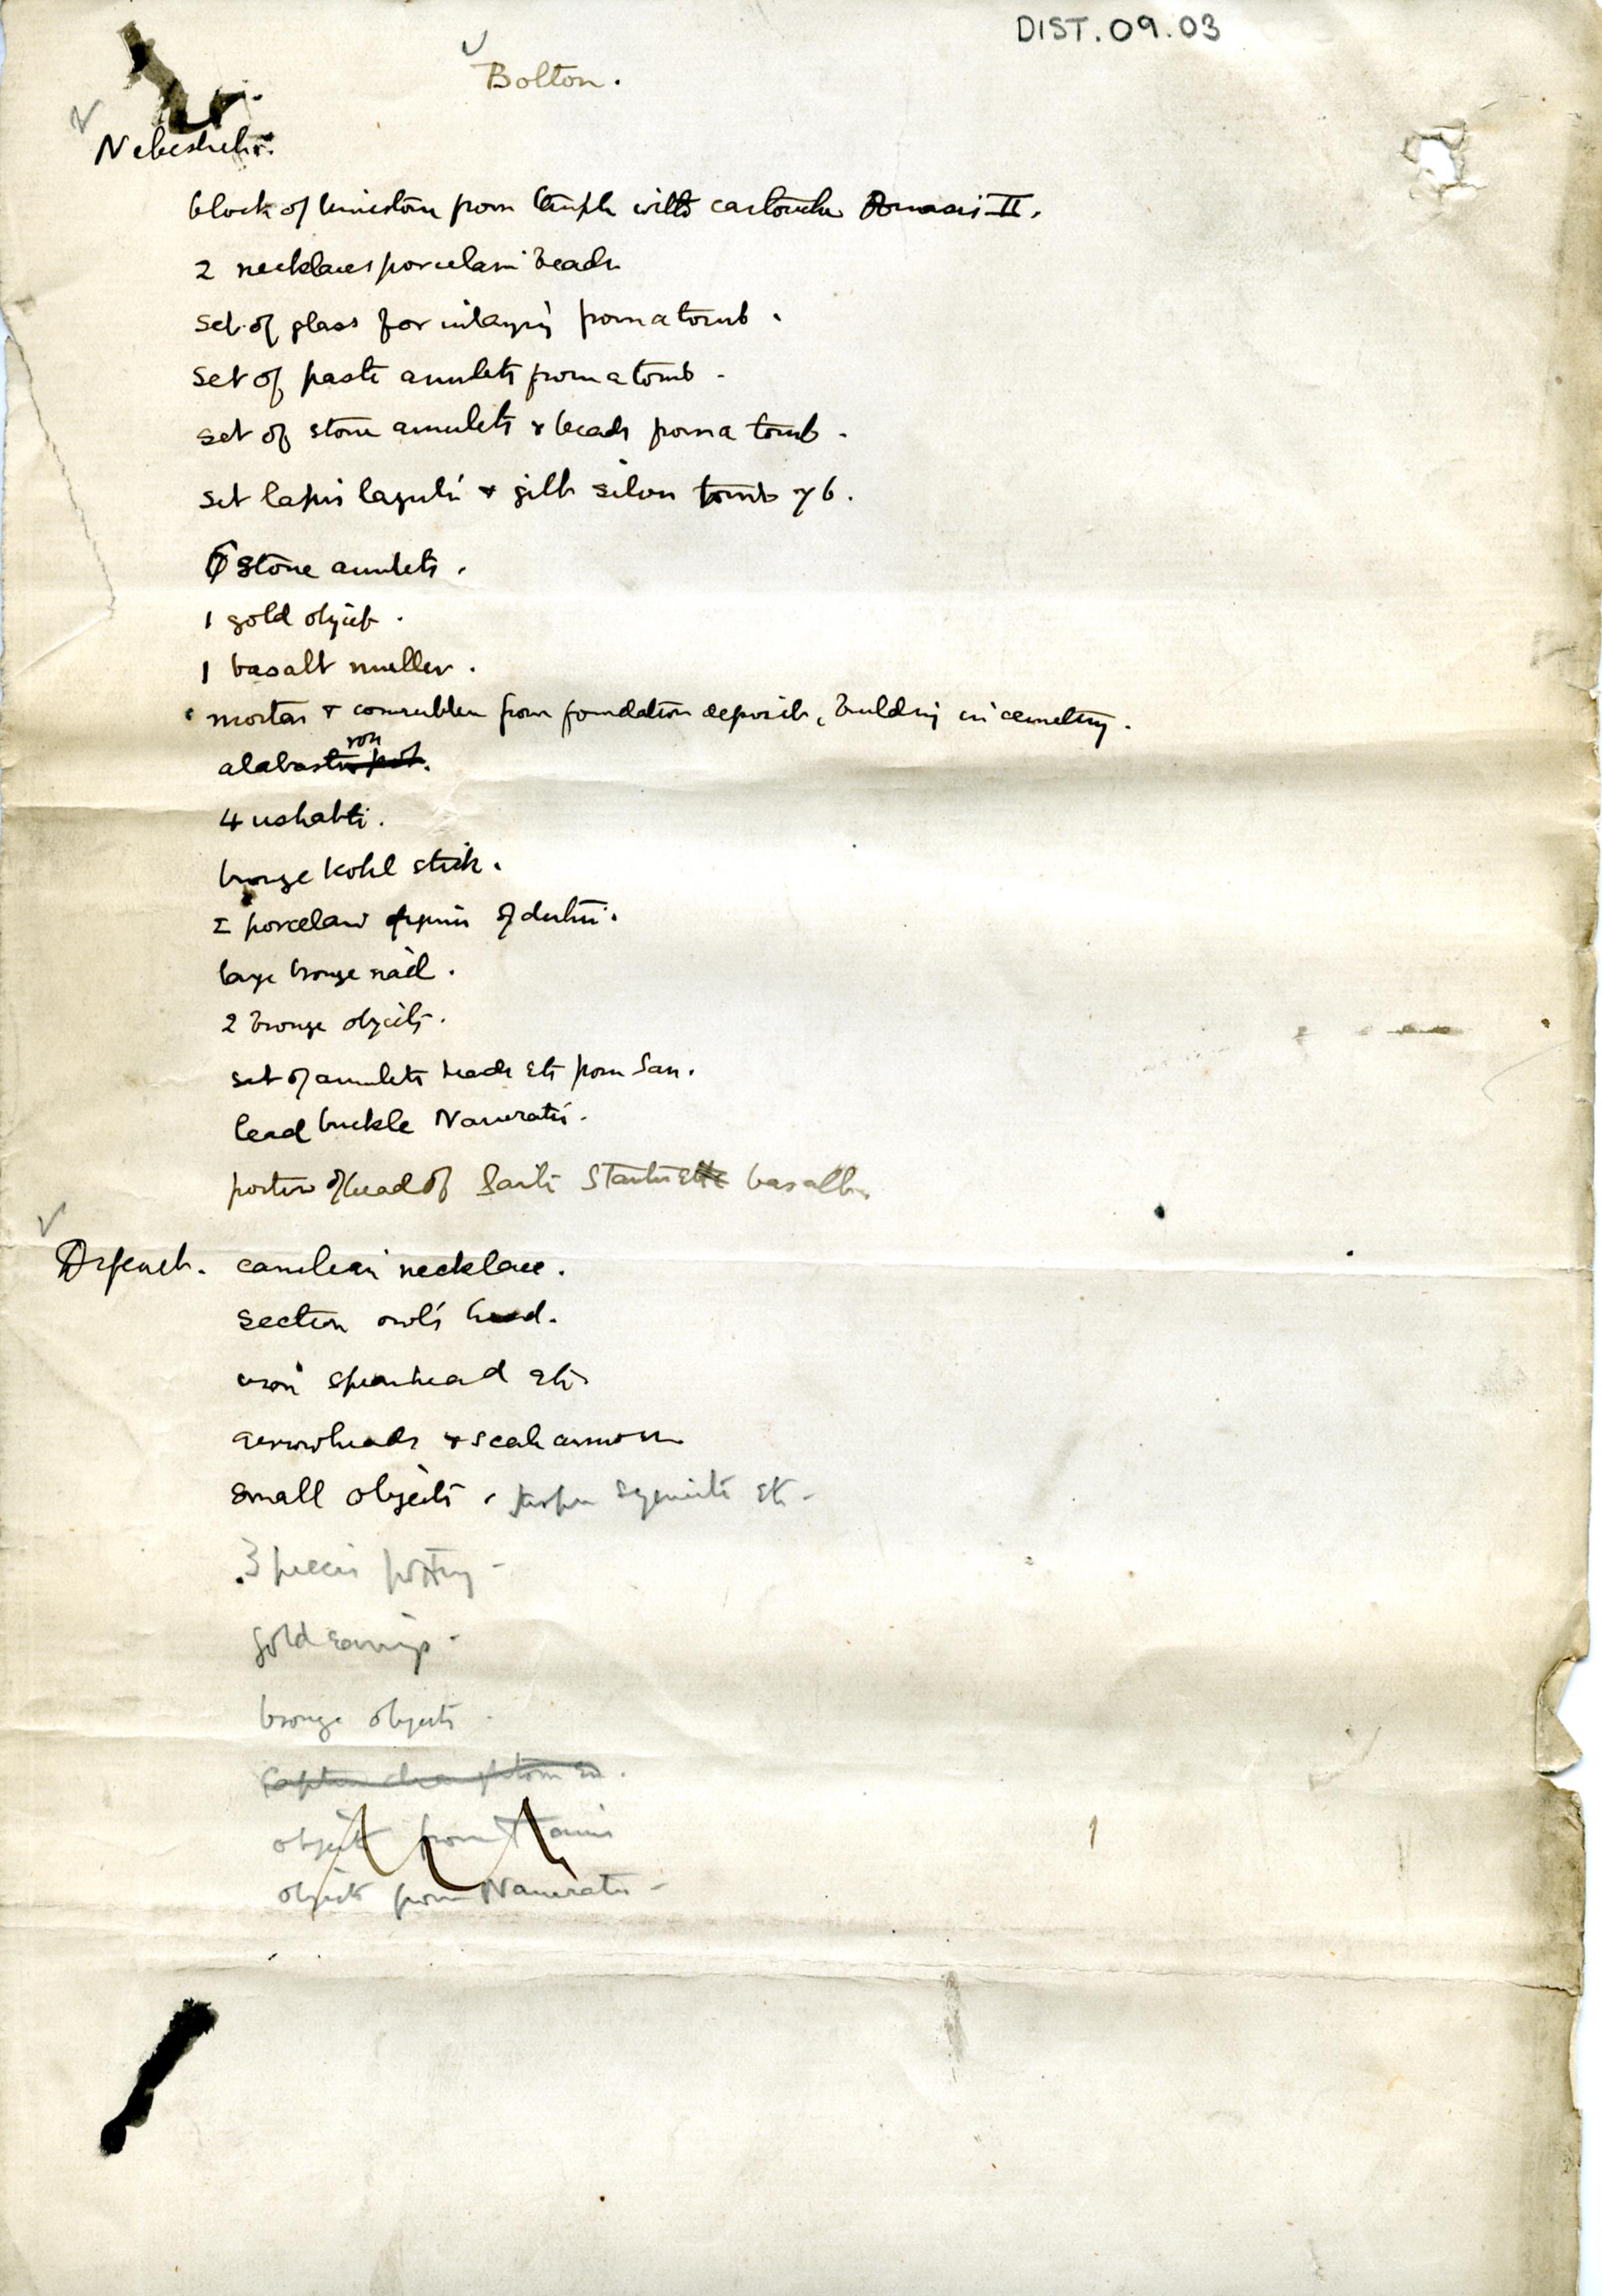 DIST.09.03
Bolton.
Nebesheh.
block of limestone from temple with cartouche Amasis II.
2 necklaces porcelain beads
set of glass for inlaying from a tomb.
set of paste amulets from a tomb.
set of stone amulets & beads from a tomb.
set lapis lazuli & gilt silver tomb 76.
6 stone amulets.
1 gold object.
1 basalt muller.
mortar & cornrubber from foundation deposit, building in cemetery.
alabastron
4 ushabti.
bronze kohl stick.
2 porcelain figures of deities.
large bronze nail.
2 bronze objects.
set of amulets beads etc from San.
lead buckle Naucratis.
portion of head of Saite Statuette basalt.
Defeneh. carnelian necklace.
section owl's head.
iron spearhead etc
arrowheads & scale armour
small objects. Jasper segments etc -
3 pieces pottery -
gold earrings -
bronze objects -
objects from Tanis
objects from Naucratis -